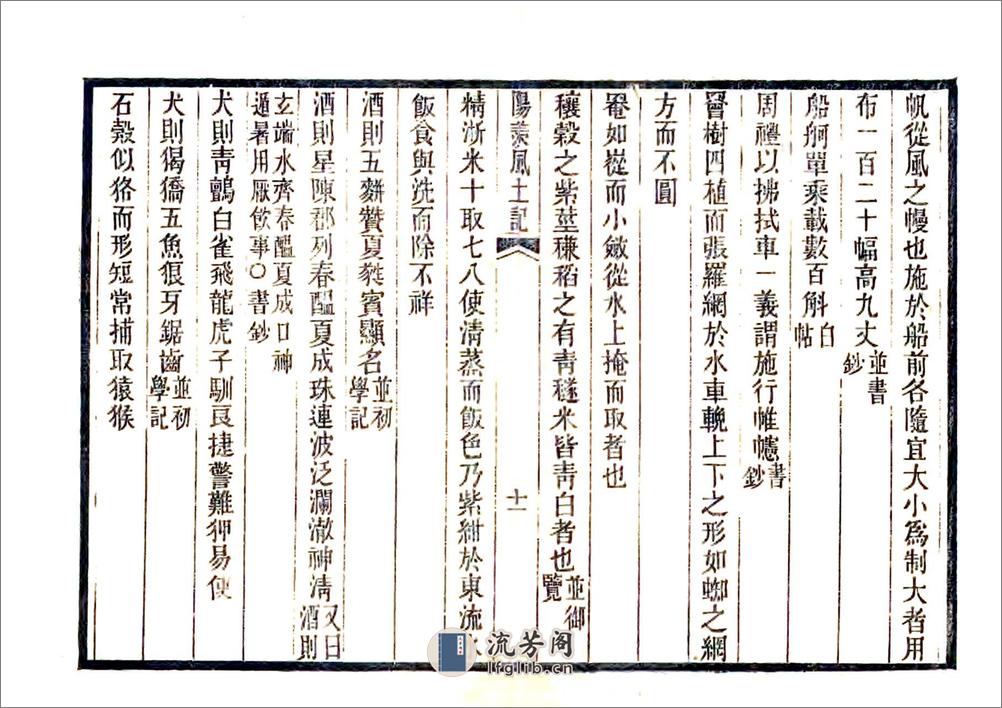 帆從風之幔也施於船前各隨宜大小爲制大者用
布一百二十幅高九丈並書鈔
船舸單乘載數百斛白帖
周禮以拂拭車一義謂施行帷幰書鈔
罾樹四植而張羅網於水車輓上下之形如蜘之網
方而不圓
罨如㠑而小斂從水上掩而取者也
穰穀之紫莖稴稻之有靑穟米皆靑白者也並御覽
陽羨風土記 十一
精淅米十取七八使淸蒸而飯色乃紫紺於東流水
飯食與洗而除不祥
酒則五䴺贊夏甤賓顯名並初學記
酒則星陳郡列春醞夏成珠連波泛瀾澈神淸又曰酒則
玄端水齊春醞夏成口神
遁暑用厭飮事〇書鈔
犬則靑鸇白雀飛龍虎子馴良捷警難狎易使
犬則猲獢五魚狠牙鋸齒並初學記
石㲉似狢而形短常捕取猿猴
流芳阁
lfglib.cn